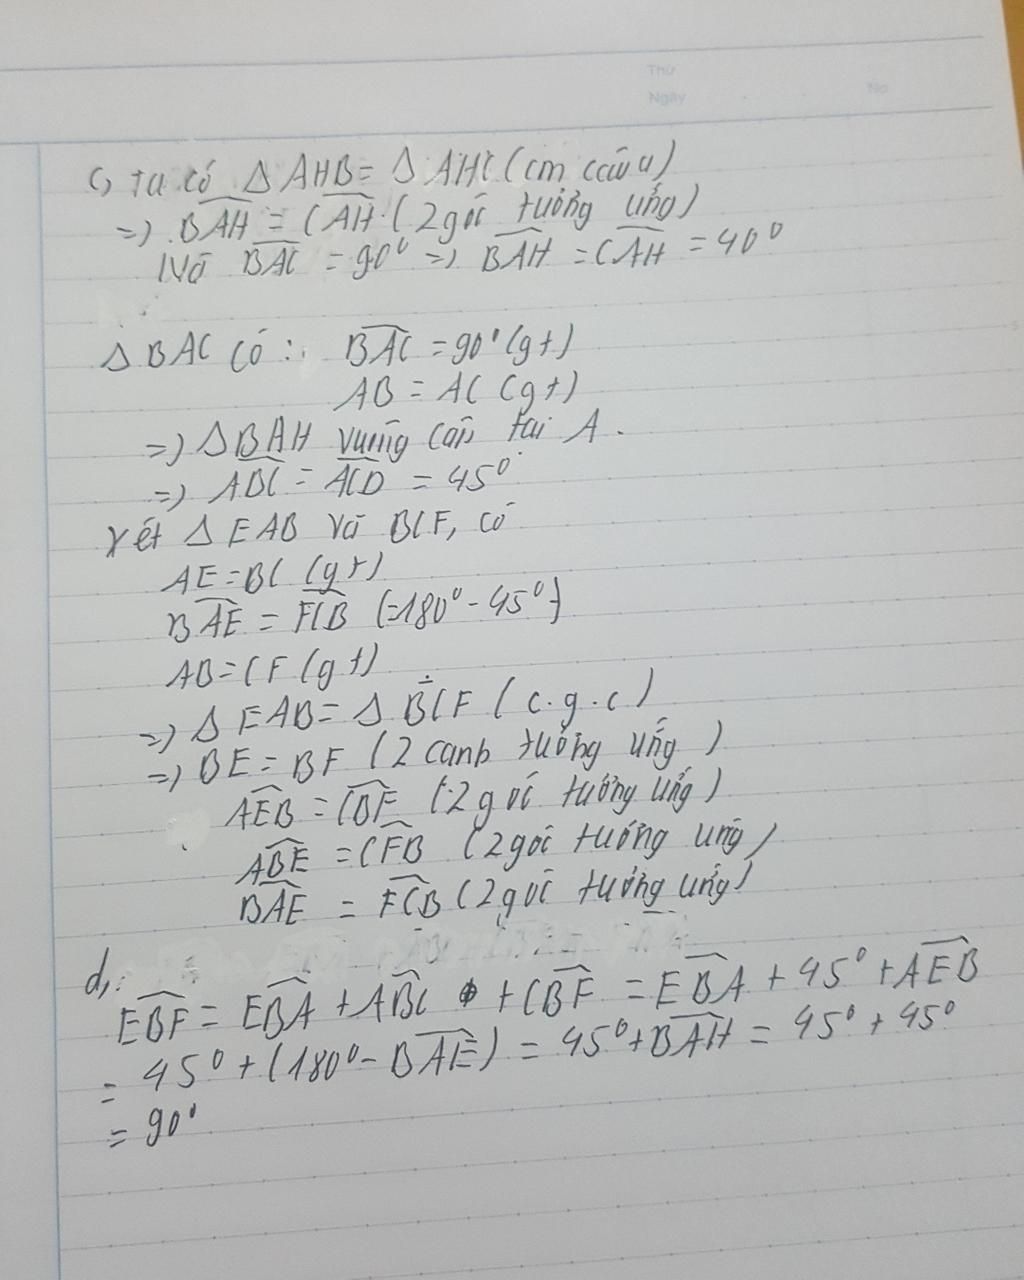 Thứ
Ngày No
c, ta có Δ AHB = Δ AHC (cm câu a)
=> BAH = CAH (2 góc tưởng ứng)
Mà BAC = 90° => BAH = CAH = 40°
Δ BAC có : BAC = 90° (gt)
AB = AC (gt)
=> Δ BAH vuông cân tại A.
=> ABC = ACD = 45°
xét Δ EAB và BCF, có
AE = BC (gt)
BAE = FCB (=180° - 45°)
AB = CF (gt)
=> Δ EAB = Δ BCF (c.g.c)
=> BE = BF (2 cạnh tưởng ứng)
AEB = CBF (2 góc tướng ứng)
ABE = CFB (2 góc tướng ứng)
BAE = FCB (2 góc tưởng ứng)
d,:
EBF = EBA + ABC + CBF = EBA + 45° + AEB
= 45° + (180° - BAE) = 45° + BAH = 45° + 45°
= 90°